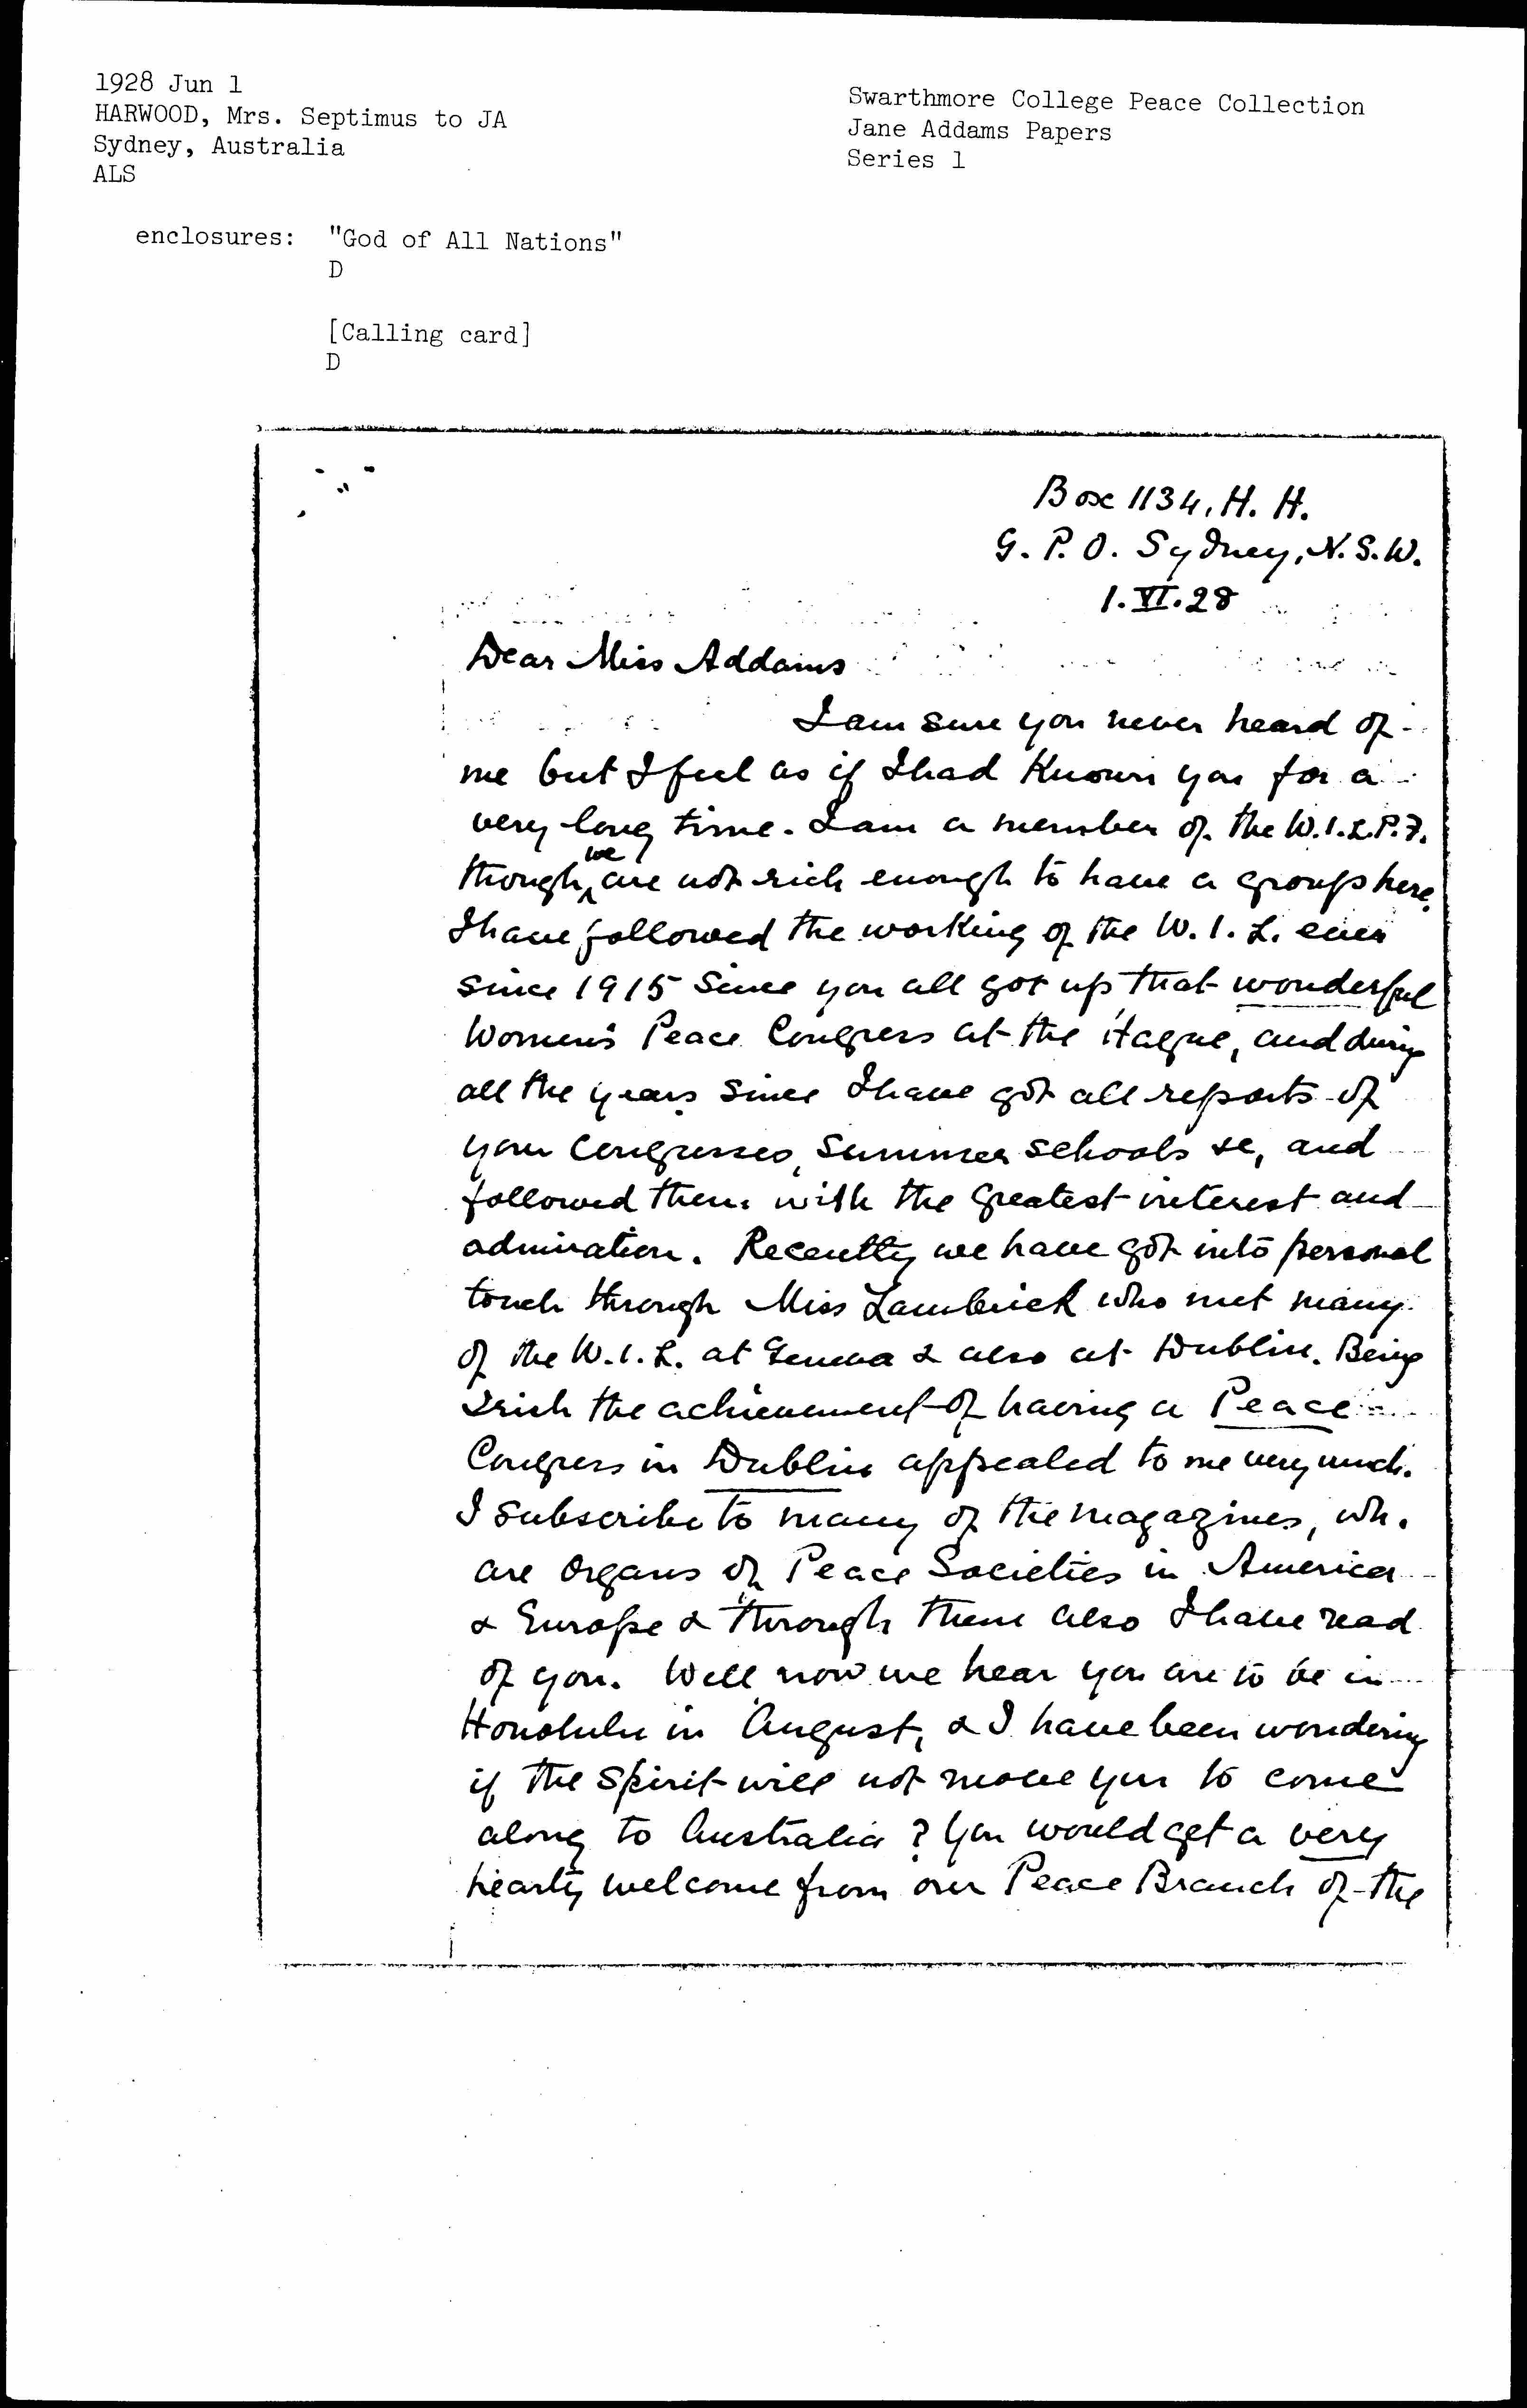 1928 Jun 1
HARWOOD, Mrs. Septimus to JA
Sydney, Australia
ALS
Swarthmore College Peace Collection
Jane Addams Papers
Series 1
enclosures: "God of All Nations"
D
[Calling card]
D
Box 1134, H. H.
G. P. O. Sydney, N. S. W.
1. VI. 28
Dear Miss Addams
I am sure you never heard of
me but I feel as if I had known you for a
very long time. I am a member of the W. I. L. P. F.
though we are not rich enough to have a group here.
I have followed the working of the W. I. L. ever
since 1915 since you all got up that wonderful
Women's Peace Congress at the Hague, and during
all the years since I have got all reports of
your Congresses, Summer Schools &c, and
followed them with the greatest interest and
admiration. Recently we have got into personal
touch through Miss Lambrick who met many
of the W. I. L. at Geneva & also at Dublin. Being
Irish the achievement of having a Peace
Congress in Dublin appealed to me very much.
I subscribe to many of the magazines, wh.
are organs of Peace Societies in America
& Europe & through them also I have read
of you. Well now we hear you are to be in
Honolulu in August, & I have been wondering
if the Spirit will not move you to come
along to Australia? You would get a very
hearty welcome from our Peace Branch of the